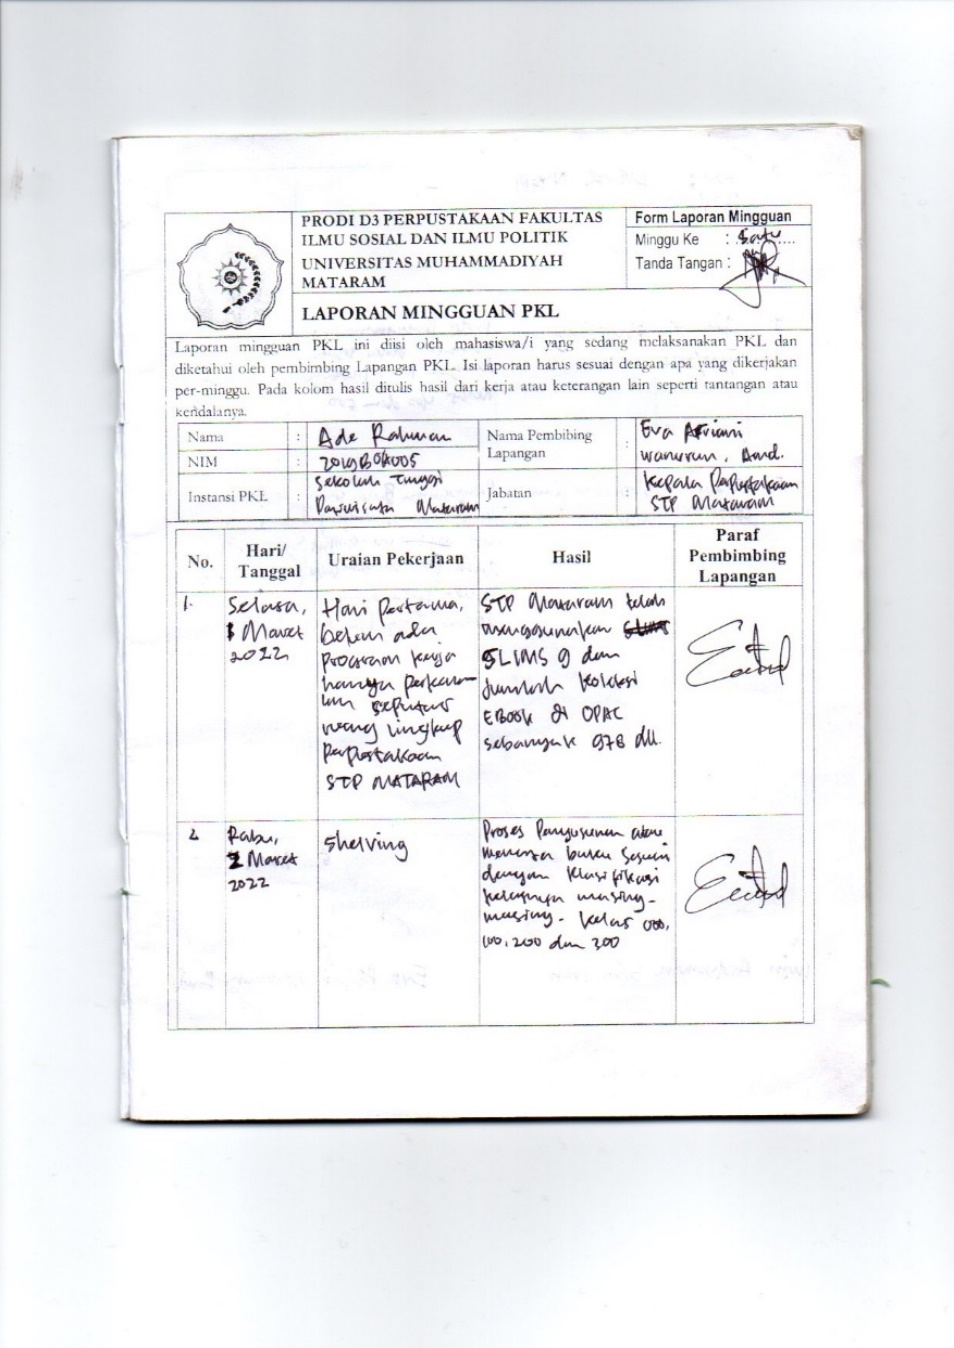 PRODI D3 PERPUSTAKAAN FAKULTAS
ILMU SOSIAL DAN ILMU POLITIK
UNIVERSITAS MUHAMMADIYAH
MATARAM
LAPORAN MINGGUAN PKL
Form Laporan Mingguan
Minggu Ke : Satu
Tanda Tangan :
Laporan mingguan PKL ini diisi oleh mahasiswa/i yang sedang melaksanakan PKL dan
diketahui oleh pembimbing Lapangan PKL. Isi laporan harus sesuai dengan apa yang dikerjakan
per-minggu. Pada kolom hasil ditulis hasil dari kerja atau keterangan lain seperti tantangan atau
kendalanya.
Nama : Ade Rahman
NIM : 2019B0A005
Instansi PKL : Sekolah Tinggi
Pariwisata Mataram
Nama Pembibing
Lapangan : Eva Afriani
Wanurun, Amd.
Jabatan : Kepala Perpustakaan
STP Mataram
No.
Hari/
Tanggal
Uraian Pekerjaan
Hasil
Paraf
Pembimbing
Lapangan
1.
Selasa,
1 Maret
2022
Hari pertama,
belum ada
program kerja
hanya perkena-
lan seputar
ruang lingkup
perpustakaan
STP MATARAM
STP Mataram telah
menggunakan
SLIMS 9 dan
Jumlah koleksi
EBook di OPAC
sebanyak 978 dll.
2
Rabu,
2 Maret
2022
Shelving
Proses Penyusunan atau
menata buku sesuai
dengan klasifikasi
kelasnya masing-
masing. kelas 000,
100, 200 dan 300